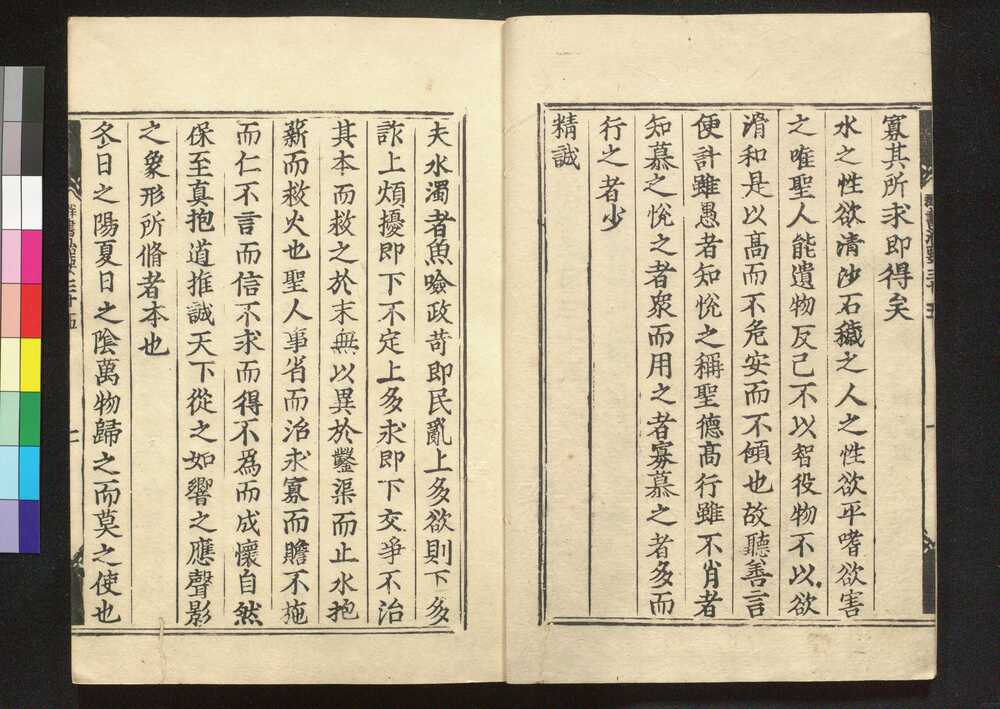 寡其所求即得矣
水之性欲清沙石穢之人之性欲平嗜欲害
之唯聖人能遺物反己不以智役物不以欲
滑和是以髙而不危安而不傾也故聽善言
便計雖愚者知悅之稱聖德髙行雖不肖者
知慕之悅之者衆而用之者寡慕之者多而
行之者少
精誠
夫水濁者魚噞政苛即民亂上多欲則下多
詐上煩擾即下不定上多求即下交爭不治
其本而救之於末無以異於鑿渠而止水抱
薪而救火也聖人事省而治求寡而贍不施
而仁不言而信不求而得不為而成懷自然
保至真抱道推誠天下從之如響之應聲影
之象形所脩者本也
冬日之陽夏日之陰萬物歸之而莫之使也
群書治要三十五
七